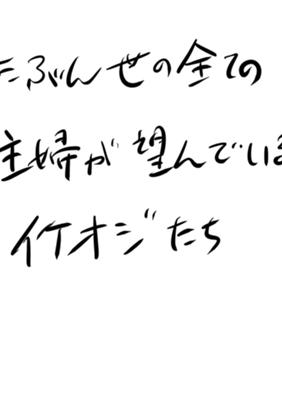 たぶん世の全ての
主婦が望んでいる
イケオジたち